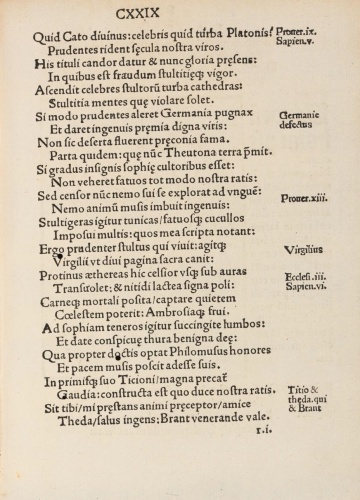 CXXIX
Quid Cato diuinus: celebris quid turba Platonis? Prouer.ix.
Prudentes rident sęcula nostra viros. Sapien.v.
His tituli candor datur & nunc gloria pręsens:
In quibus est fraudum stultitięq; vigor.
Ascendit celebres stultorū turba cathedras:
Stultitia mentes quę violare solet.
Si modo prudentes aleret Germania pugnax Germanie
Et daret ingenuis pręmia digna viris: defectus
Non sic deserta fluerent pręconia fama.
Parta quidem: que nūc Theutona terra p̄mit.
Si gradus insignis sophię cultoribus esset:
Non veheret fatuos tot modo nostra ratis:
Sed censor nūc nemo sui se explorat ad vnguē: Prouer.xiii.
Nemo animū musis imbuit ingenuis:
Stultigeras igitur tunicas/fatuosq; cucullos
Imposui multis: quos mea scripta notant:
Ergo prudenter stultus qui viuit: agitq; Virgilius
Virgilii vt diui pagina sacra canit:
Protinus æthereas hic celsior vsq; sub auras Ecclesi.iii.
Transuolet: & nitidi lactea signa poli: Sapien.vi.
Carneq; mortali posita/captare quietem
Cœlestem poterit: Ambrosiaq; frui.
Ad sophiam teneros igitur succingite lumbos:
Et date conspicuę thura benigna deę:
Qua propter doctis optat Philomusus honores
Et pacem musis poscit adesse suis.
In primisq; suo Ticioni/magna precat̄
Gaudia: constructa est quo duce nostra ratis. Titio &
Sit tibi/mi pręstans animi pręceptor/amice theda.qui
Theda/salus ingens: Brant venerande vale. & Brant
r.i.